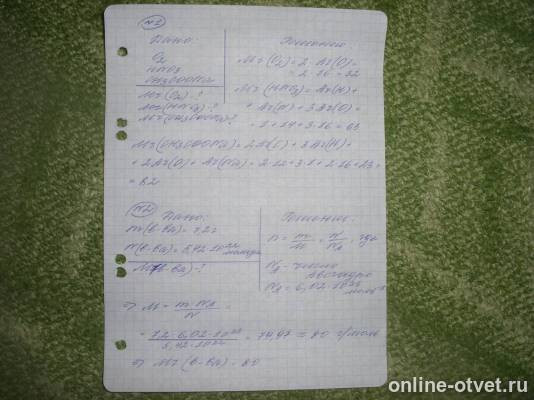 №1
Дано:
O₂
HNO₃
CH₃COONa
Mr(O₂)-?
Mr(HNO₃)-?
Mr(CH₃COONa)?
Решение:
Mr(O₂) = 2·Ar(O) =
= 2·16 = 32
Mr(HNO₃) = Ar(H) +
+ Ar(N) + 3Ar(O) =
= 1+14+3·16 = 63
Mr(CH₃COONa) = 2Ar(C) + 3Ar(H) +
+ 2Ar(O) + Ar(Na) = 2·12+3·1+2·16+23 =
= 82
№2
Дано:
m(в-ва) = 7,2г
N(в-ва) = 5,42·10²²
молекул
M(в-ва)-?
Решение:
n = m/M = N/Nₐ, где
Nₐ - число
Авогадро
Nₐ = 6,02·10²³
моль⁻¹
⇒ M = m·Nₐ/N =
= 7,2·6,02·10²³/5,42·10²² = 79,97 ≈ 80 г/моль
⇒ Mr(в-ва) = 80
online-otvet.ru